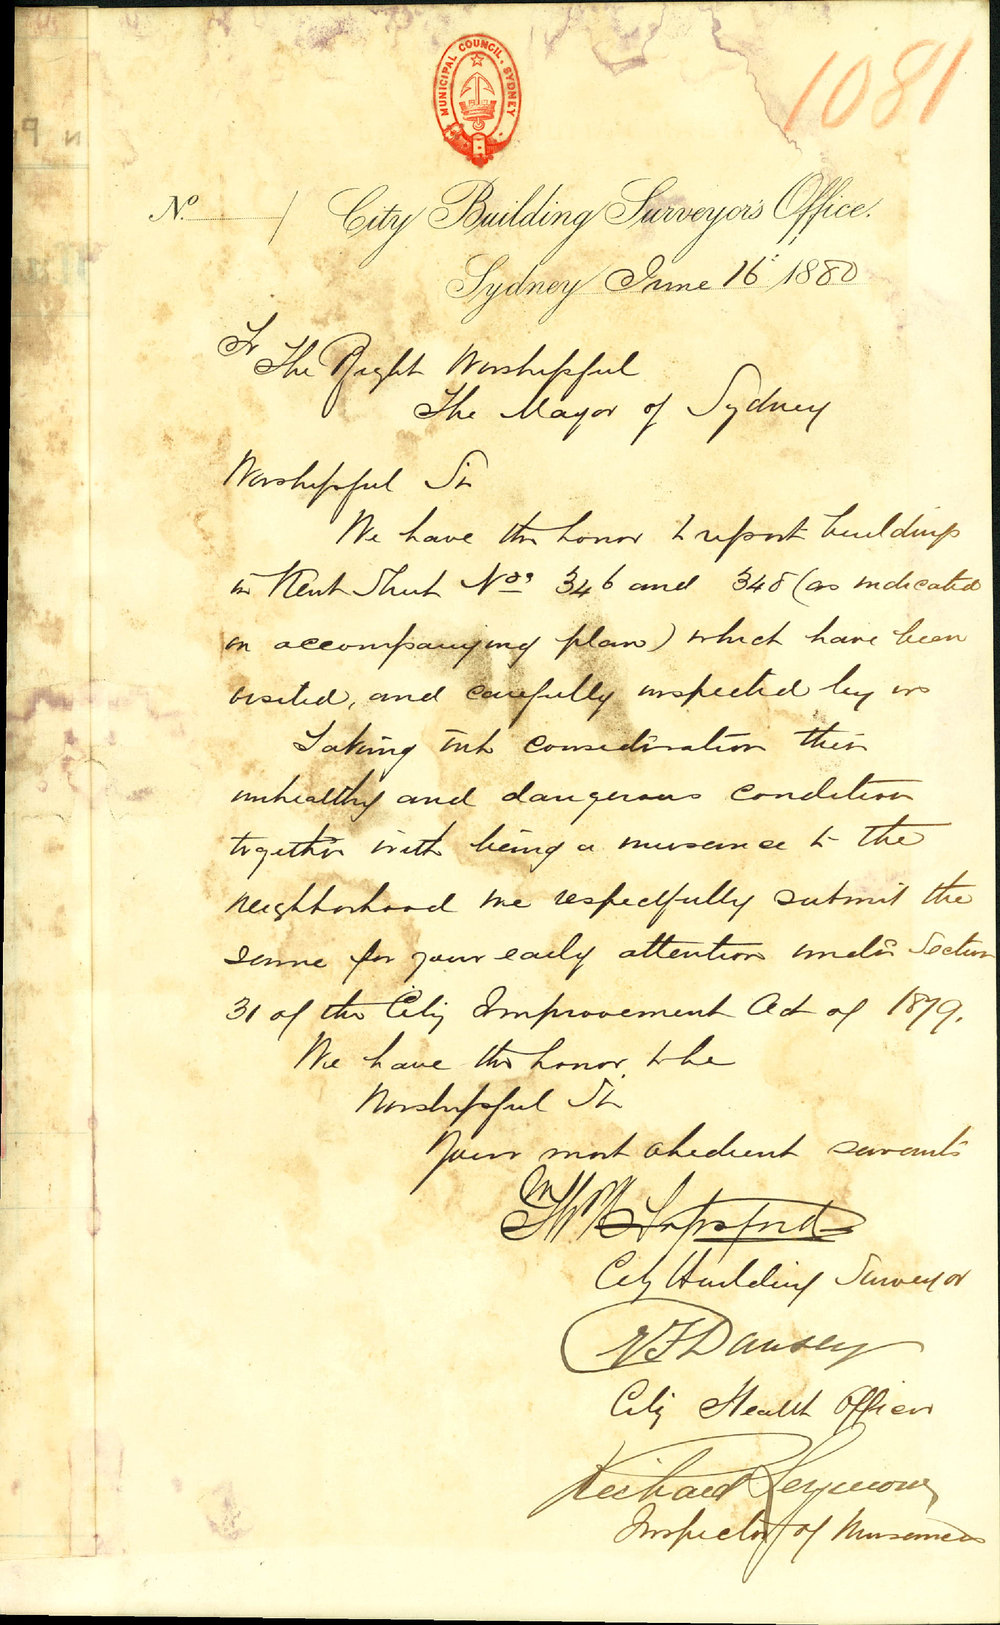 MUNICIPAL COUNCIL. SYDNEY
1081
No. / City Building Surveyor's Office.
Sydney June 16t 1880
To The Right Worshipful
The Mayor of Sydney
Worshipful Sir
We have the honor to report buildings
in Kent Street Nos 346 and 348 (as indicated
in accompanying plan) which have been
visited, and carefully inspected by us
Taking into consideration their
unhealthy and dangerous condition
together with being a nuisance to the
neighborhood we respectfully submit the
same for your early attention under Section
31 of the City Improvement Act of 1879.
We have the honor to be
Worshipful Sir
Your most obedient servants
Sapsford
City Building Surveyor
Dansey
City Health Officer
Richard Seymour
Inspector of Nuisances